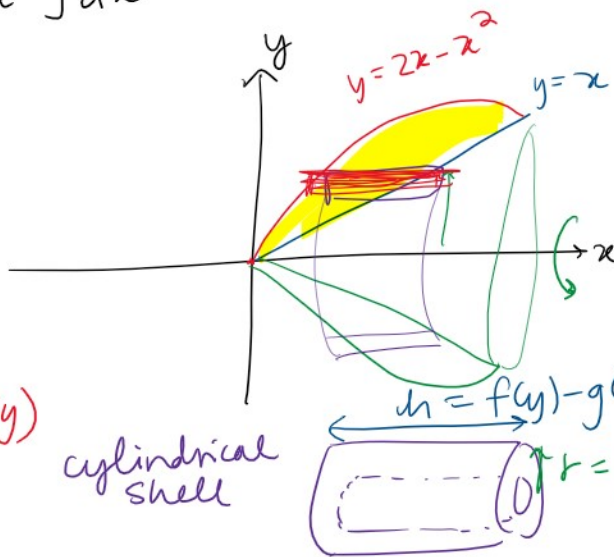 y
y = 2x - x²
y = x
x
y)
h = f(y) - g(
cylindrical
shell
r =